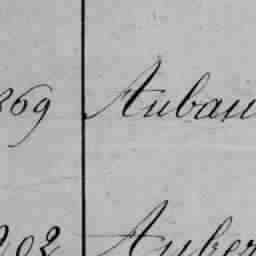 869 Aubau
902 Auber